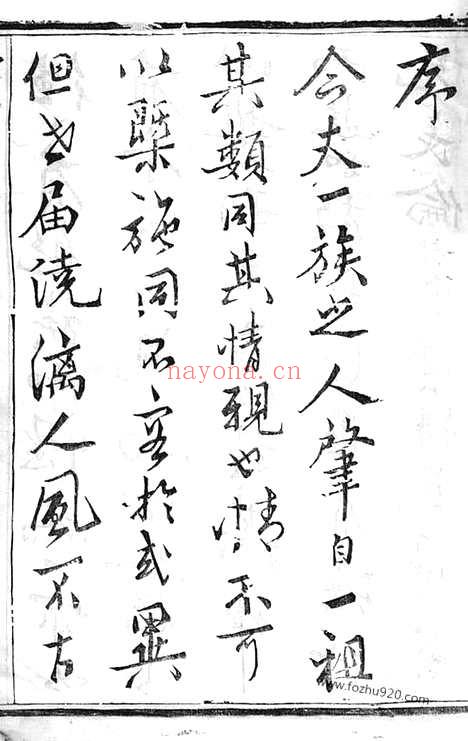 序
今夫一族之人肇自一祖
其類同其情親也情不可
以槩施同不容於或異
但世届澆漓人風不古
nayona.cn
www.fozhu920.com